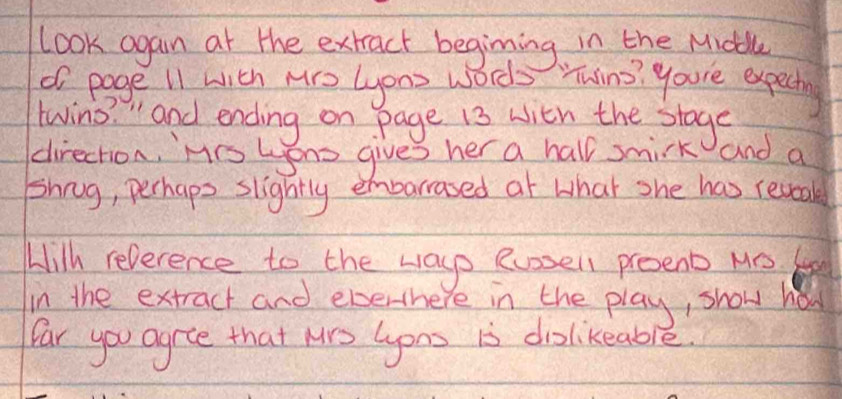 Look again at the extract begining in the Middle
of page 11 with Mrs Lyons words "Twins? You're expecting
twins?" and ending on page 13 with the stage
direction. 'Mrs Lyons gives her a half smirk and a
shrug, perhaps slightly embarrased at what she has
With reference to the ways Russell presents Mrs
in the extract and elsewhere in the play, show how
far you agree that Mrs Lyons is dislikeable.